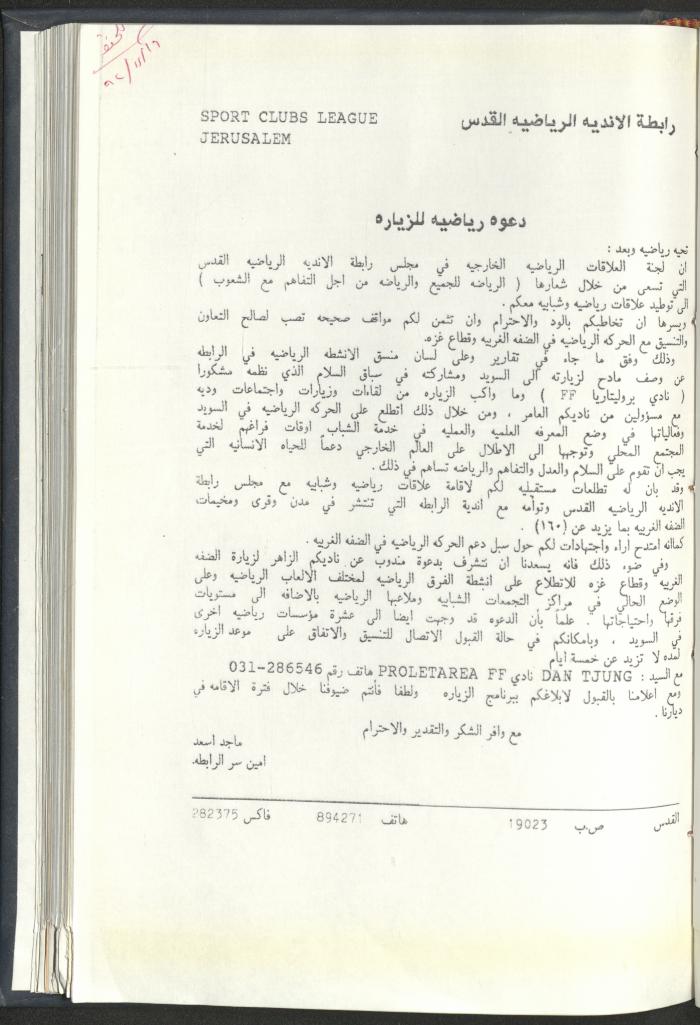 للحفظ
٩٢/١١/١٦
SPORT CLUBS LEAGUE
JERUSALEM
رابطة الانديه الرياضيه القدس
دعوه رياضيه للزياره
تحيه رياضيه وبعد :
ان لجنة العلاقات الرياضيه الخارجيه في مجلس رابطة الانديه الرياضيه القدس
التي تسعى من خلال شعارها ( الرياضه للجميع والرياضه من اجل التفاهم مع الشعوب )
الى توطيد علاقات رياضيه وشبابيه معكم .
ويسرها ان تخاطبكم بالود والاحترام وان تثمن لكم مواقف صحيحه تصب لصالح التعاون
والتنسيق مع الحركه الرياضيه في الضفه الغربيه وقطاع غزه.
وذلك وفق ما جاء في تقارير وعلى لسان منسق الانشطه الرياضيه في الرابطه
عن وصف مادح لزيارته الى السويد ومشاركته في سباق السلام الذي نظمه مشكورا
( نادي بروليتاريا FF ) وما واكب الزياره من لقاءات وزيارات واجتماعات وديه
مع مسؤولين من ناديكم العامر ، ومن خلال ذلك اتطلع على الحركه الرياضيه في السويد
وفعالياتها في وضع المعرفه العلميه والعمليه في خدمة الشباب اوقات فراغهم لخدمة
المجتمع المحلي وتوجهها الى الاطلال على العالم الخارجي دعماً للحياه الانسانيه التي
يجب ان تقوم على السلام والعدل والتفاهم والرياضه تساهم في ذلك .
وقد بان له تطلعات مستقبليه لكم لاقامة علاقات رياضيه وشبابيه مع مجلس رابطة
الانديه الرياضيه القدس وتوأمه مع اندية الرابطه التي تنتشر في مدن وقرى ومخيمات
الضفه الغربيه بما يزيد عن (١٦٠) .
كماانه امتدح اراء واجتهادات لكم حول سبل دعم الحركه الرياضيه في الضفه الغربيه .
وفي ضوء ذلك فانه يسعدنا ان نتشرف بدعوة مندوب عن ناديكم الزاهر لزيارة الضفه
الغربيه وقطاع غزه للاتطلاع على انشطة الفرق الرياضيه لمختلف الالعاب الرياضيه وعلى
الوضع الحالي في مراكز التجمعات الشبابيه وملاعبها الرياضيه بالاضافه الى مستويات
فرقها واحتياجاتها . علماً بأن الدعوه قد وجهت ايضا الى عشرة مؤسسات رياضيه اخرى
في السويد ، وبامكانكم في حالة القبول الاتصال للتنسيق والاتفاق على موعد الزياره
لمده لا تزيد عن خمسة ايام
مع السيد : DAN TJUNG نادي PROLETAREA FF هاتف رقم 286546-031
ومع اعلامنا بالقبول لابلاغكم ببرنامج الزياره ولطفا فأنتم ضيوفنا خلال فترة الاقامه في
ديارنا .
مع وافر الشكر والتقدير والاحترام
ماجد اسعد
امين سر الرابطه.
القدس ص.ب 19023 هاتف 894271 فاكس 282375